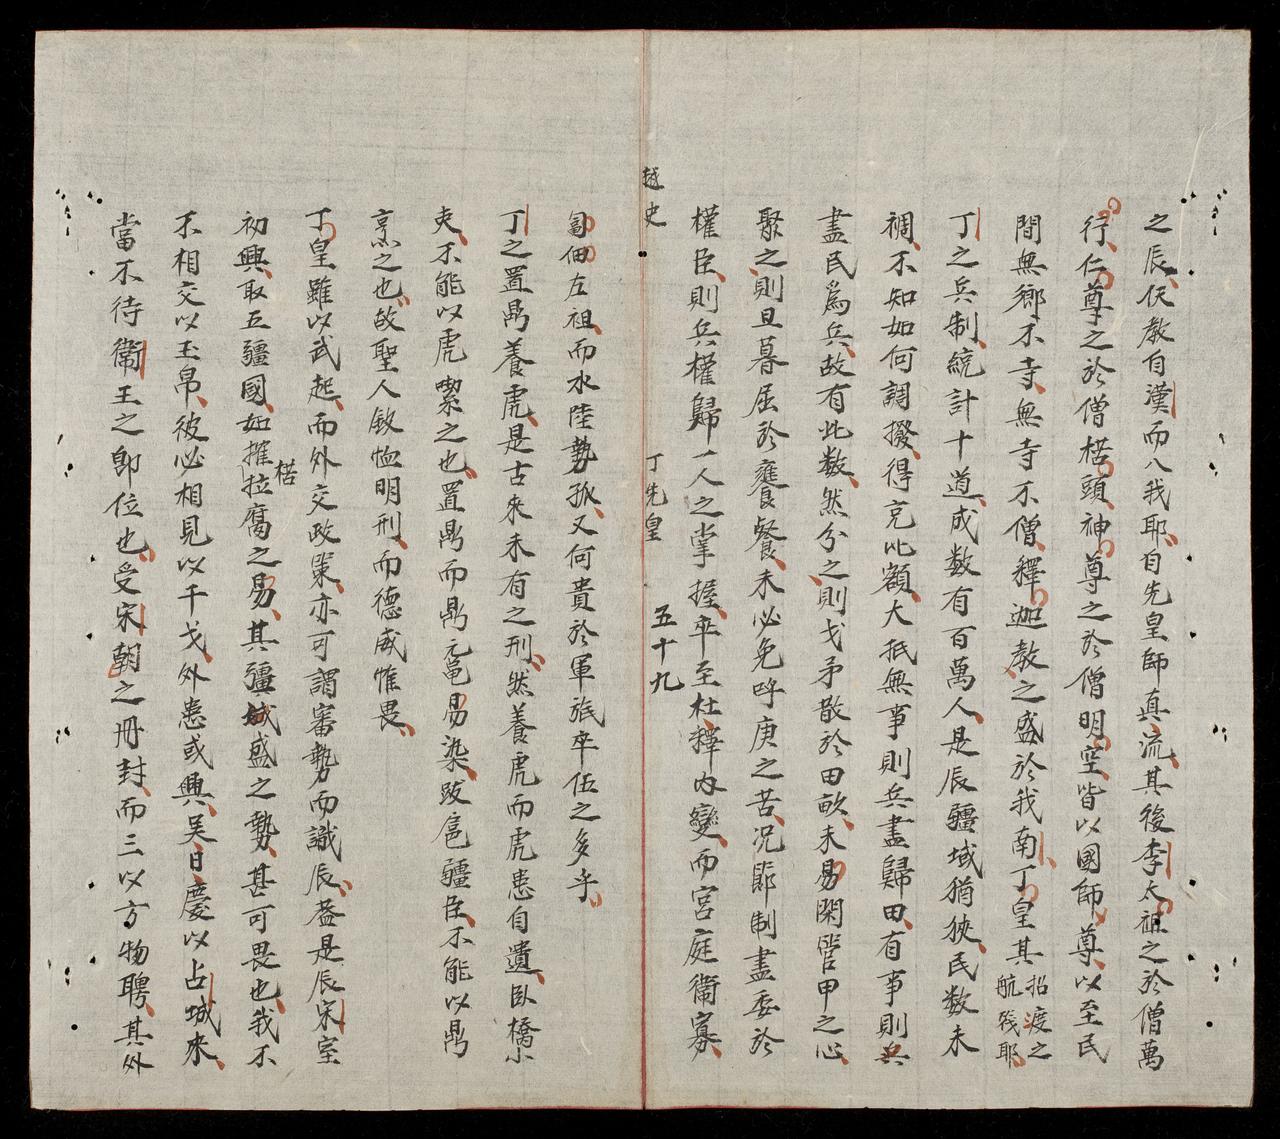 之辰仸教自漢而入我耶自先皇師真流其後李太祖之於僧萬
行仁尊之於僧楛頭神尊之於僧明空皆以國師尊以至民
間無鄉不寺無寺不僧釋迦教之盛於我南丁皇其招渡之航筏耶
丁之兵制統計十道成数有百萬人是辰疆域猶狹民数未
稠不知如何調撥得克此額大抵無事則兵盡歸田有事則兵
盡民爲兵故有此数然分之則戈矛散於田畝未易閑管甲之心
聚之則旦暮屈於饔餐未必免呼庚之苦况節制盡委於
權臣則兵權歸一人之掌握卒至杜釋內變而宮庭衞寡
越史 丁先皇 五十九
匐佃左祖而水陸勢孤又何貴於軍旅卒伍之多乎
丁之置鼎養虎是古來未有之刑然養虎而虎患自遺臥橋小
吏不能以虎喫之也置鼎而鼎黿易染跋扈疆臣不能以鼎
烹之也故聖人欽恤明刑而德威惟畏
丁皇雖以武起而外交政策亦可謂審勢而識辰益是辰宋室
初興取五疆國如摧楛拉腐之易其疆域盛之勢甚可畏也我不
不相交以玉帛彼必相見以干戈外患或興吴日慶以占城來
當不待衞王之卽位也受宋朝之冊封而三以方物聘其外